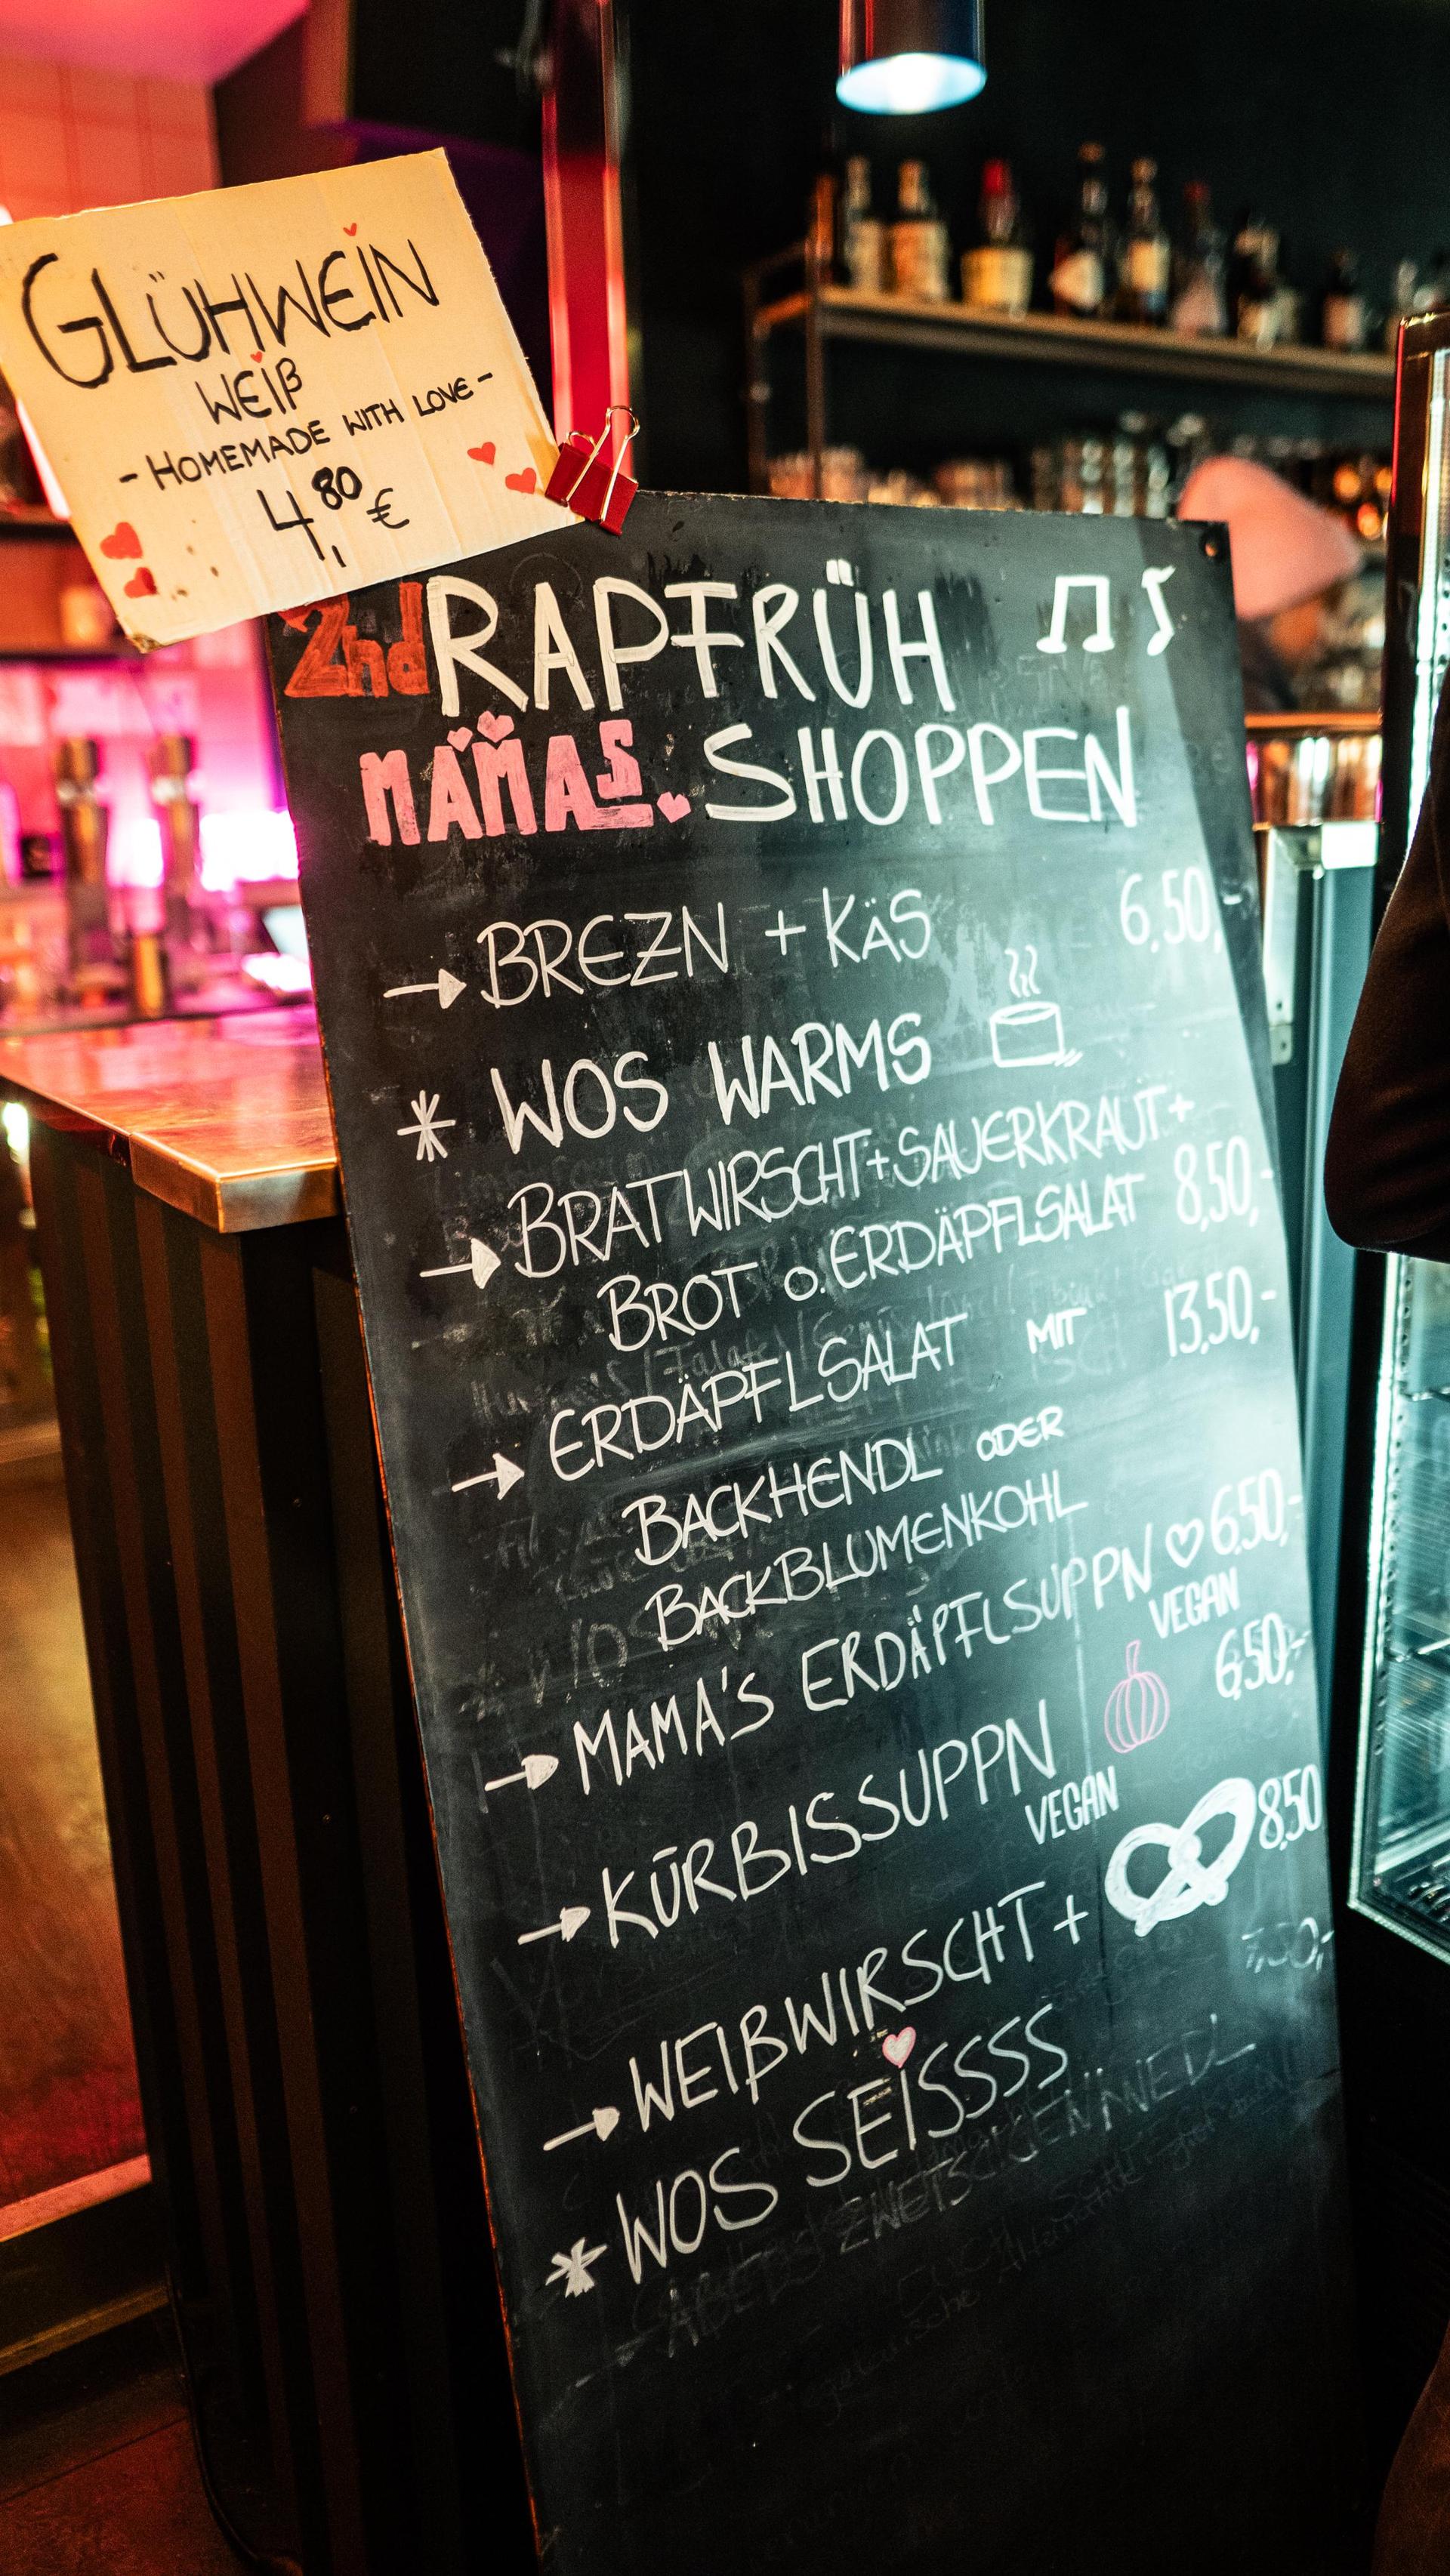 GLÜHWEIN
WEIß
- HOMEMADE WITH LOVE -
4,80 €
2nd RAPFRÜH
MAMAS SHOPPEN
BREZN + KÄS 6,50,
* WOS WARMS
BRATWIRSCHT + SAUERKRAUT +
BROT O. ERDÄPFLSALAT 8,50,-
ERDÄPFLSALAT MIT 13,50,-
BACKHENDL ODER
BACKBLUMENKOHL
MAMA'S ERDÄPFLSUPPN 6,50,-
VEGAN
KÜRBISSUPPN 6,50,-
VEGAN
WEIßWIRSCHT + 8,50
* WOS SEISSSS